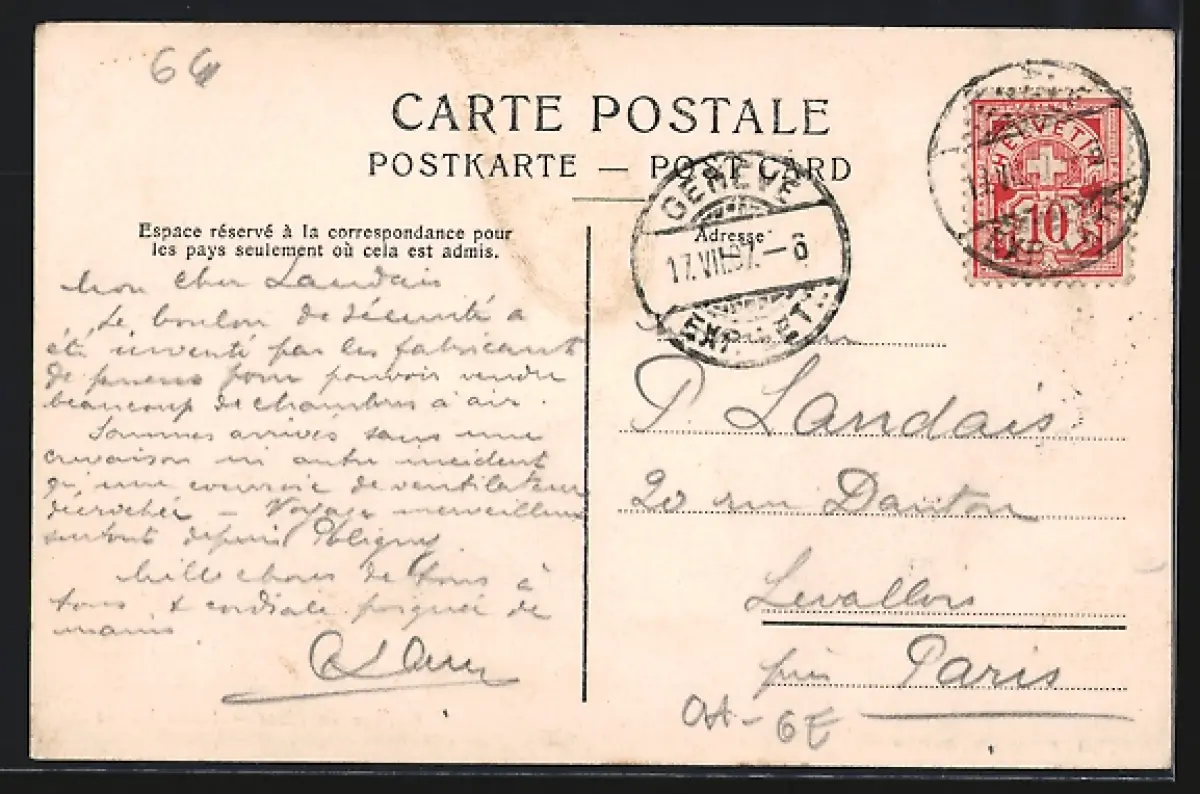 66
CARTE POSTALE
POSTKARTE — POST CARD
Espace réservé à la correspondance pour
les pays seulement où cela est admis.
Adresse
GENÈVE
17.VII.07.—6
EXP. LET.
HELVETIA
10
EXP. LET
Mon cher Landais
Le boulon de sécurité a
été inventé par les fabricants
de pneus pour pouvoir vendre
beaucoup de chambres à air.
Sommes arrivés sans une
crevaison ni autre incident
qu'une courroie de ventilateur
décrochée — Voyage merveilleux
surtout depuis Poligny.
Mille choses de tous à
tous & cordiale poignée de
mains.
Monsieur
P. Landais
20 rue Danton
Levallois
près Paris
6E